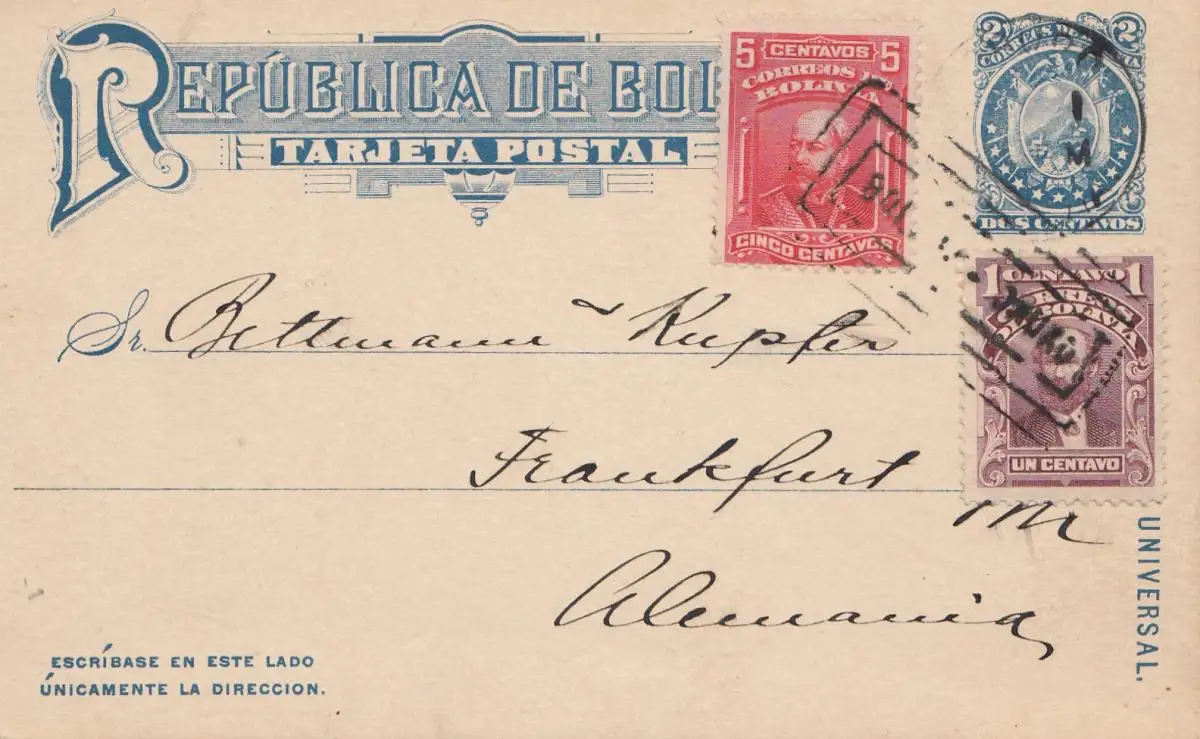 REPÚBLICA DE BOL
TARJETA POSTAL
5 CENTAVOS 5
CORREOS DE
BOLIVIA
CINCO CENTAVOS
2 2
CORREOS DE
DOS CENTAVOS
1 CENTAVO 1
CORREOS
DE BOLIVIA
UN CENTAVO
Sr. Bettmann & Kupfer
Frankfurt
M
Alemania
UNIVERSAL.
ESCRÍBASE EN ESTE LADO
ÚNICAMENTE LA DIRECCION.